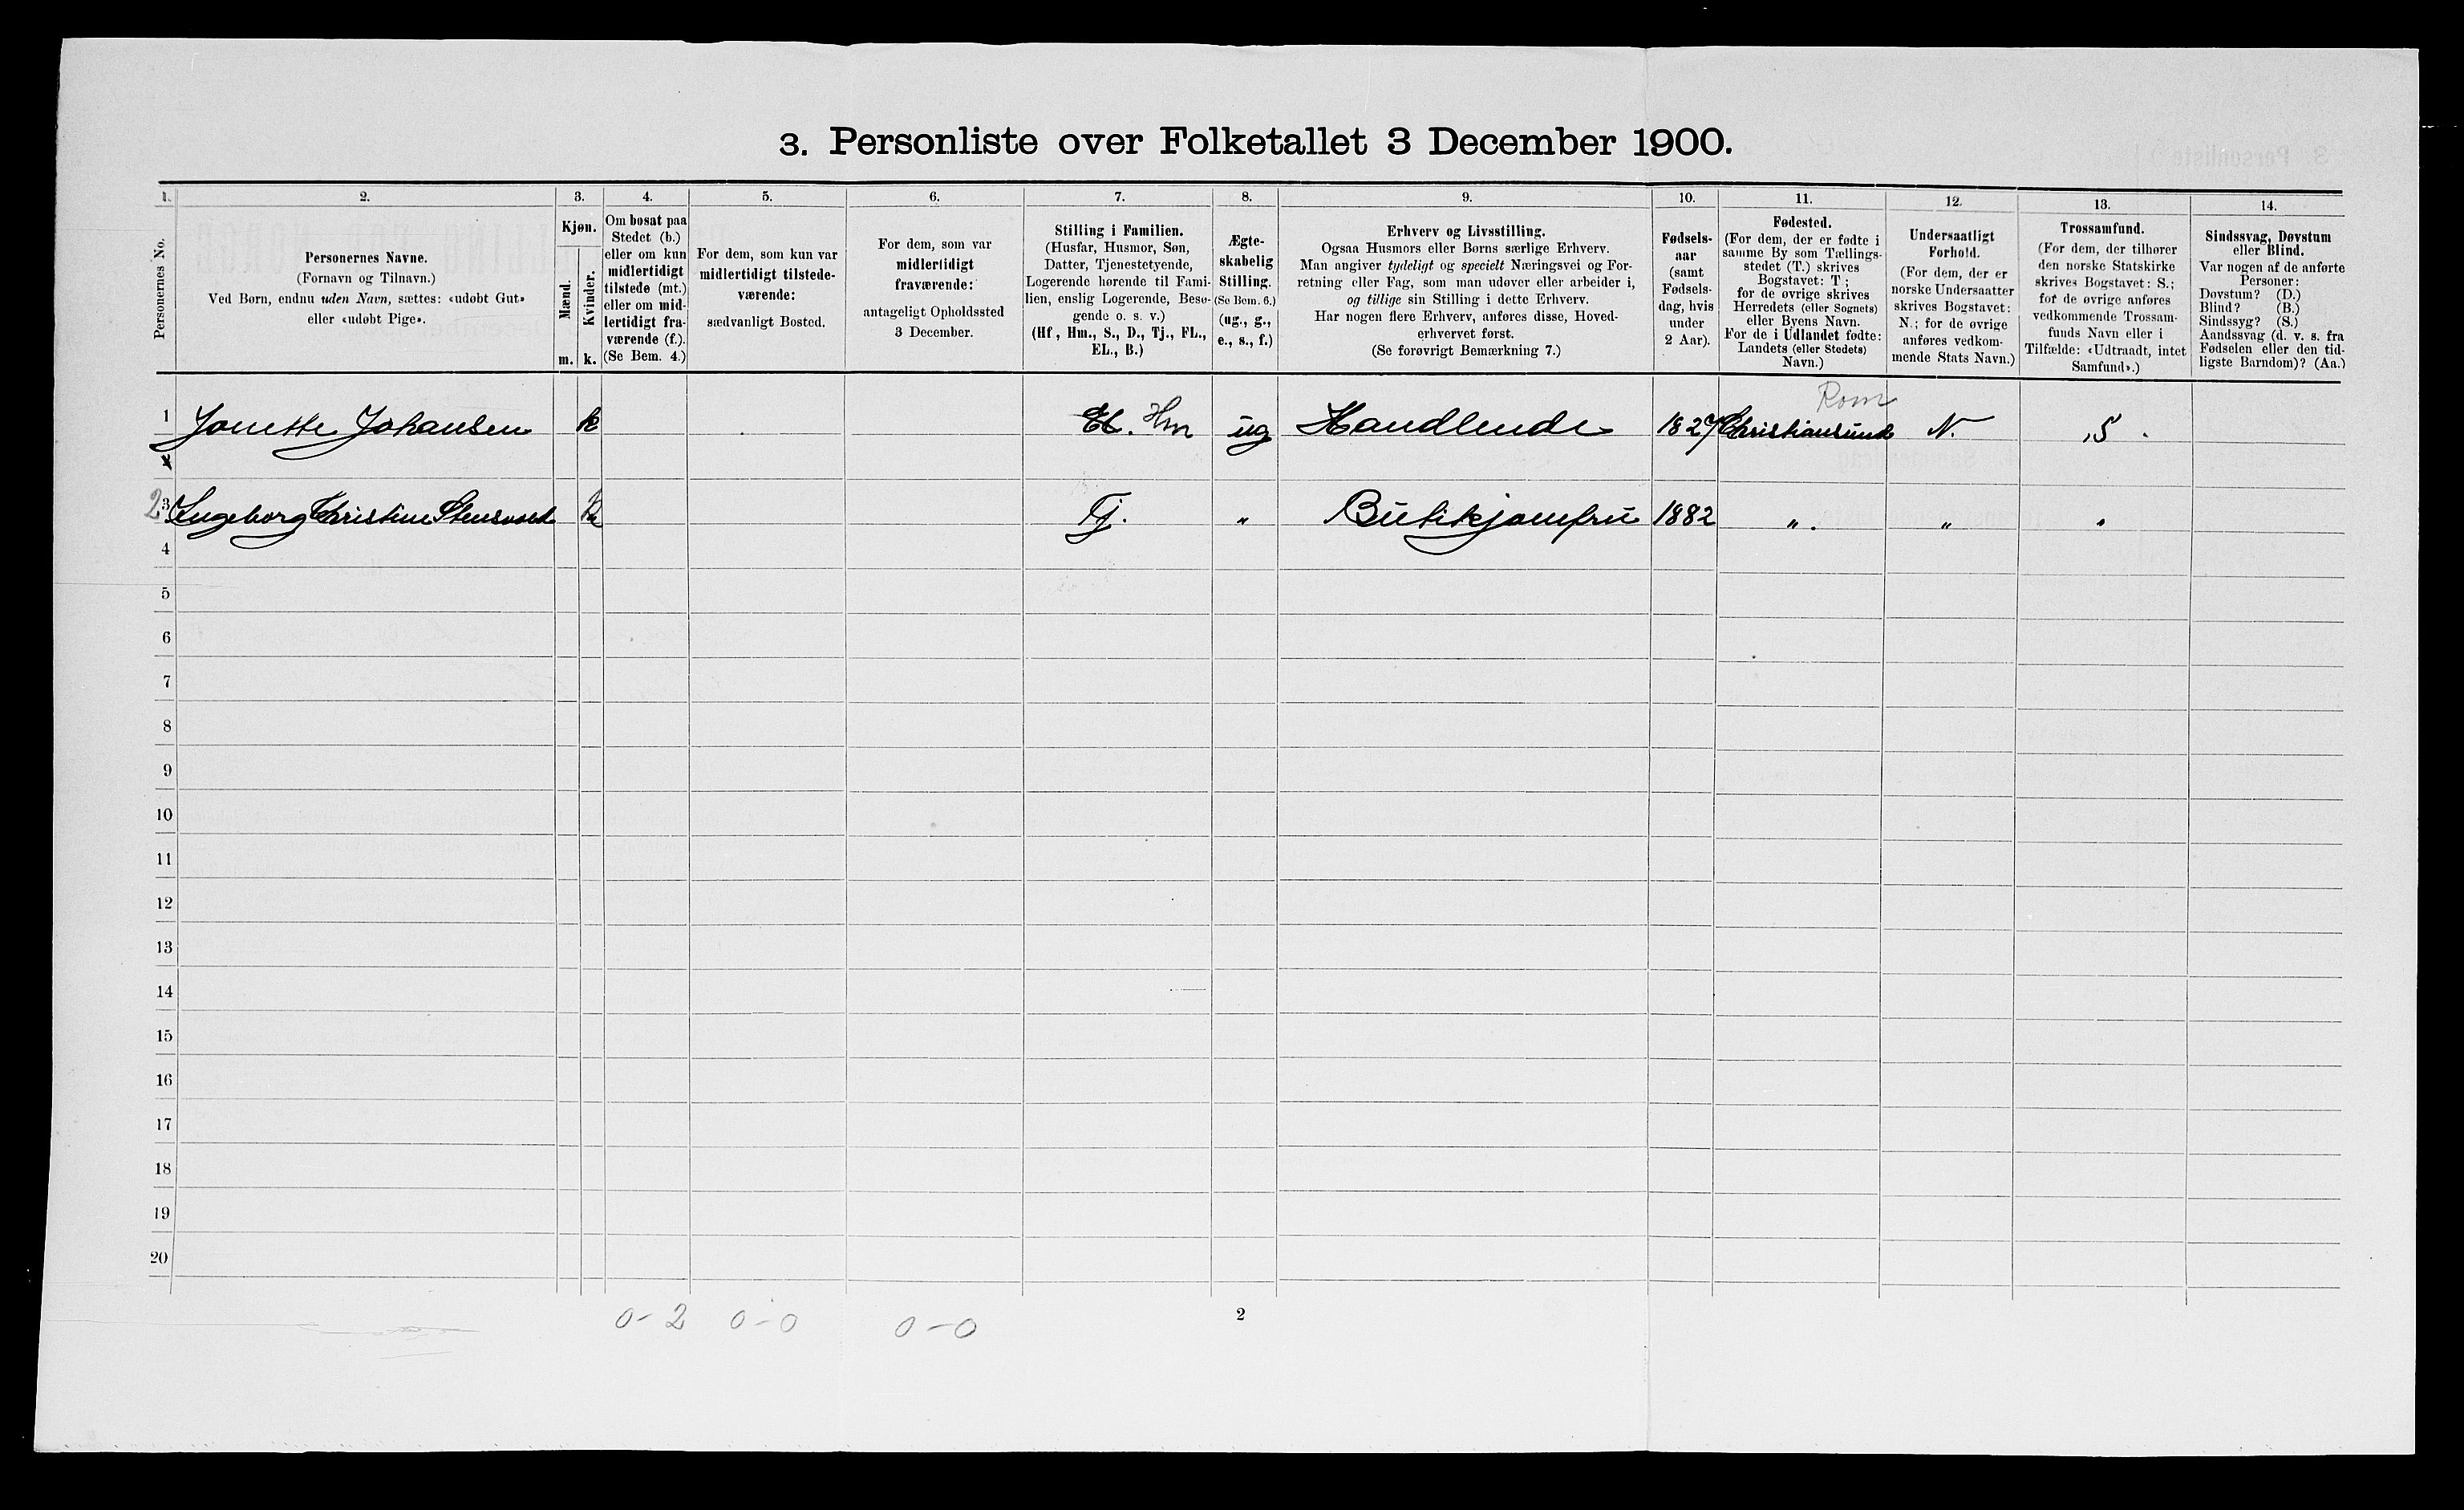 3. Personliste over Folketallet 3 December 1900.
1. 2. 3. 4. 5. 6. 7. 8. 9. 10. 11. 12. 13. 14.
Personernes No.
Personernes Navne.
(Fornavn og Tilnavn.)
Ved Børn, endnu uden Navn, sættes: «udøbt Gut»
eller «udøbt Pige».
Kjøn.
Mænd.
Kvinder.
m. k.
Om bosat paa
Stedet (b.)
eller om kun
midlertidigt
tilstede (mt.)
eller om mid-
lertidigt fra-
værende (f.).
(Se Bem. 4.)
For dem, som kun var
midlertidigt tilstede-
værende:
sædvanligt Bosted.
For dem, som var
midlertidigt
fraværende:
antageligt Opholdssted
3 December.
Stilling i Familien.
(Husfar, Husmor, Søn,
Datter, Tjenestetyende,
Logerende hørende til Fami-
lien, enslig Logerende, Besø-
gende o. s. v.)
(Hf, Hm., S., D., Tj., FL.,
EL., B.)
Ægte-
skabelig
Stilling.
(Se Bem. 6.)
(ug., g.,
e., s., f.)
Erhverv og Livsstilling.
Ogsaa Husmors eller Børns særlige Erhverv.
Man angiver tydeligt og specielt Næringsvei og For-
retning eller Fag, som man udøver eller arbeider i,
og tillige sin Stilling i dette Erhverv.
Har nogen flere Erhverv, anføres disse, Hoved-
erhvervet først.
(Se forøvrigt Bemærkning 7.)
Fødsels-
aar
(samt
Fødsels-
dag, hvis
under
2 Aar).
Fødested.
(For dem, der er fødte i
samme By som Tællings-
stedet (T.) skrives
Bogstavet: T;
for de øvrige skrives
Herredets (eller Sognets)
eller Byens Navn.
For de i Udlandet fødte:
Landets (eller Stedets)
Navn.)
Undersaatligt
Forhold.
(For dem, der er
norske Undersaatter
skrives Bogstavet:
N.; for de øvrige
anføres vedkom-
mende Stats Navn.)
Trossamfund.
(For dem, der tilhører
den norske Statskirke
skrives Bogstavet: S.;
for de øvrige anføres
vedkommende Trossam-
funds Navn eller i
Tilfælde: «Udtraadt, intet
Samfund».)
Sindssvag, Døvstum
eller Blind.
Var nogen af de anførte
Personer:
Døvstum? (D.)
Blind? (B.)
Sindssyg? (S.)
Aandssvag (d. v. s. fra
Fødselen eller den tid-
ligste Barndom)? (Aa.)
Rom
1 Jonette Johansen k El. Hm ug Handlende 1827 Christiansund N. S.
2 3 Ingeborg Christine Stensvoet k Tj. " Butikjomfru 1882 " " "
4
5
6
7
8
9
10
11
12
13
14
15
16
17
18
19
20
0-2 0-0 0-0 2